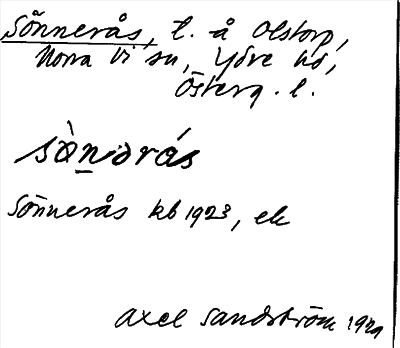 Sönnerås, t. å Olstorp,
Norra Vi sn, Ydre hd,
Österg. l.
sò̀n̠ərás
Sönnerås kb 1923, ek
Axel Sandström